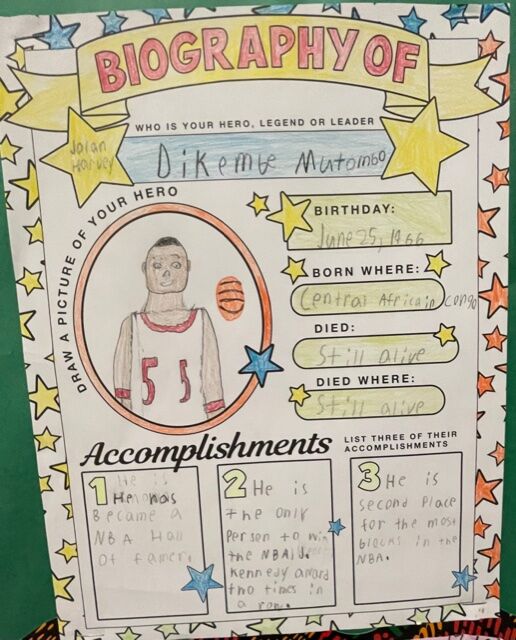 BIOGRAPHY OF
WHO IS YOUR HERO, LEGEND OR LEADER
Jalan
Harvey
Dikembe Mutombo
DRAW A PICTURE OF YOUR HERO
BIRTHDAY:
June 25, 1966
BORN WHERE:
Central Africa in congo
DIED:
Still alive
DIED WHERE:
Still alive
55
Accomplishments
LIST THREE OF THEIR
ACCOMPLISHMENTS
1
He has
Became a
NBA Hall
Of famer.
2 He is
the only
Person to win
the NBA J.
Kennedy award
two times in
a row.
3 He is
second place
for the most
blocks in the
NBA.